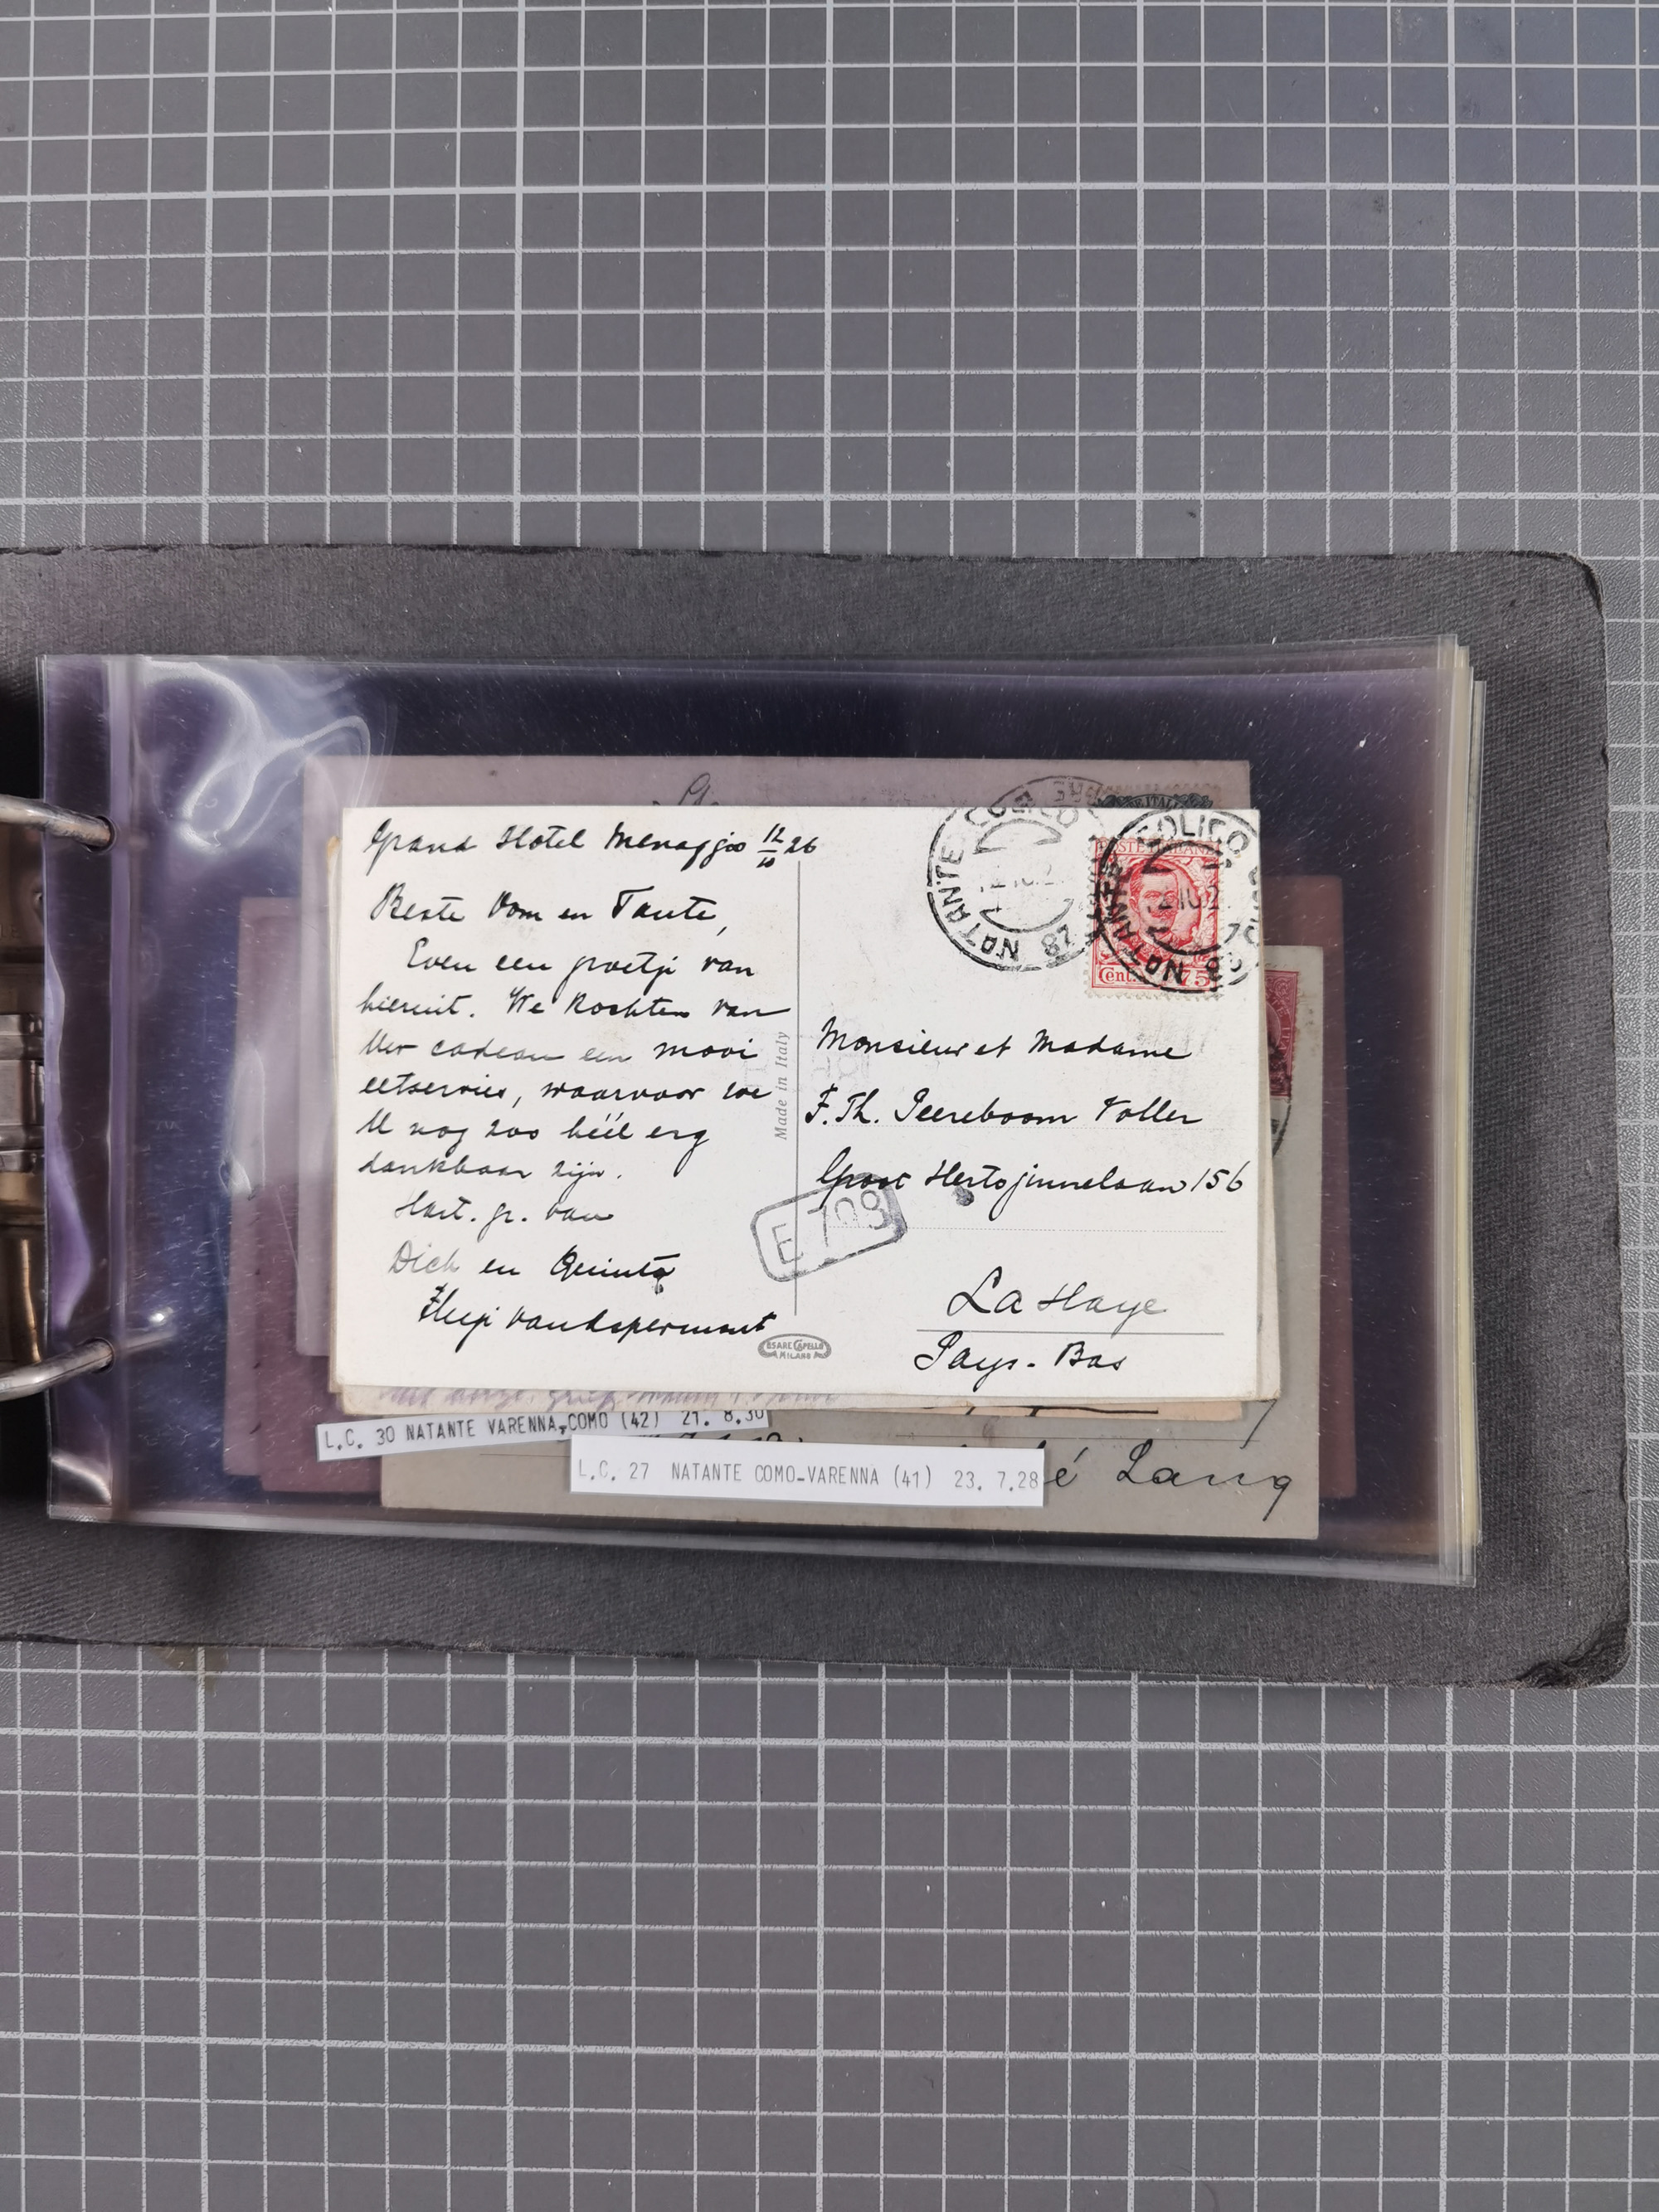 Grand Hotel Menaggio 12/10 26
Beste Oom en Tante,
Even een groetje van
hieruit. We kochten van
Uw cadeau een mooi
eetservies, waarvoor we
U nog zoo héél erg
dankbaar zijn.
Hart. gr. van
Dick en Quinta
Made in Italy
CESARE CAPELLO
MILANO
E 108
NATANTE COLICO
87
NATANTE COLICO
POSTE ITALIANE
Cent. 75
Monsieur et Madame
F. Th. Peereboom Voller
Groot Hertoginnelaan 156
La Haye
Pays-Bas
L.C. 30 NATANTE VARENNA-COMO (42) 21. 8.30
L.C. 27 NATANTE COMO-VARENNA (41) 23. 7.28
é Lang